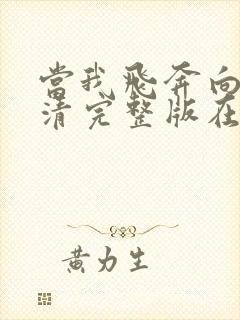 當我飛奔向
清完整版在
黃力生